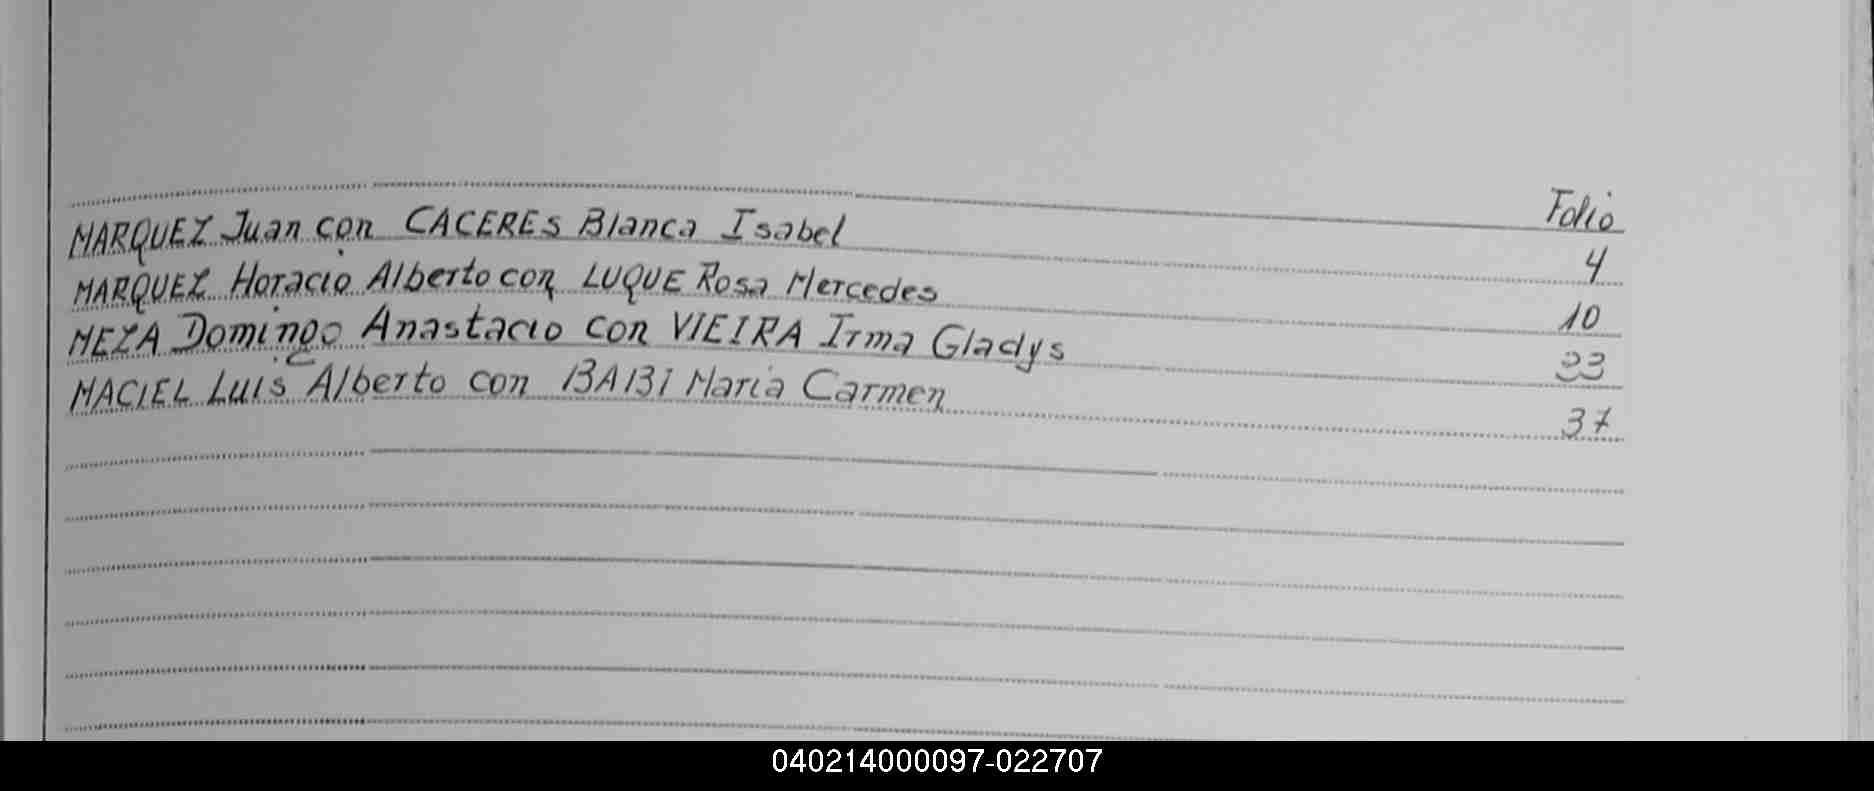 Folio
MARQUEZ Juan con CACERES Blanca Isabel 4
MARQUEZ Horacio Alberto con LUQUE Rosa Mercedes 10
MEZA Domingo Anastacio con VIEIRA Irma Gladys 33
MACIEL Luis Alberto con BABI Maria Carmen 37
040214000097-022707